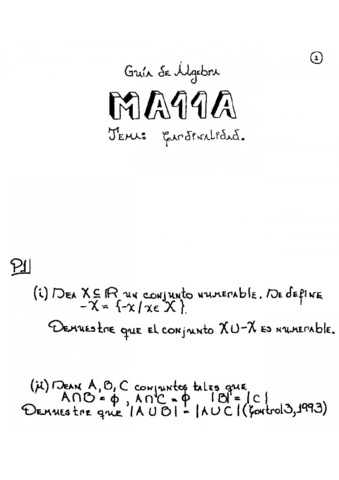 1
Guía de Álgebra
MA11A
Tema: Cardinalidad.
P1
(i) Sea X ⊆ ℝ un conjunto numerable. Se define
-X = {-x/x∈X}.
Demuestre que el conjunto X∪-X es numerable.
(ii) Sean A, B, C conjuntos tales que
A∩B = ϕ, A∩C = ϕ |B| = |C|
Demuestre que |A∪B| = |A∪C| (Control 3, 1993)